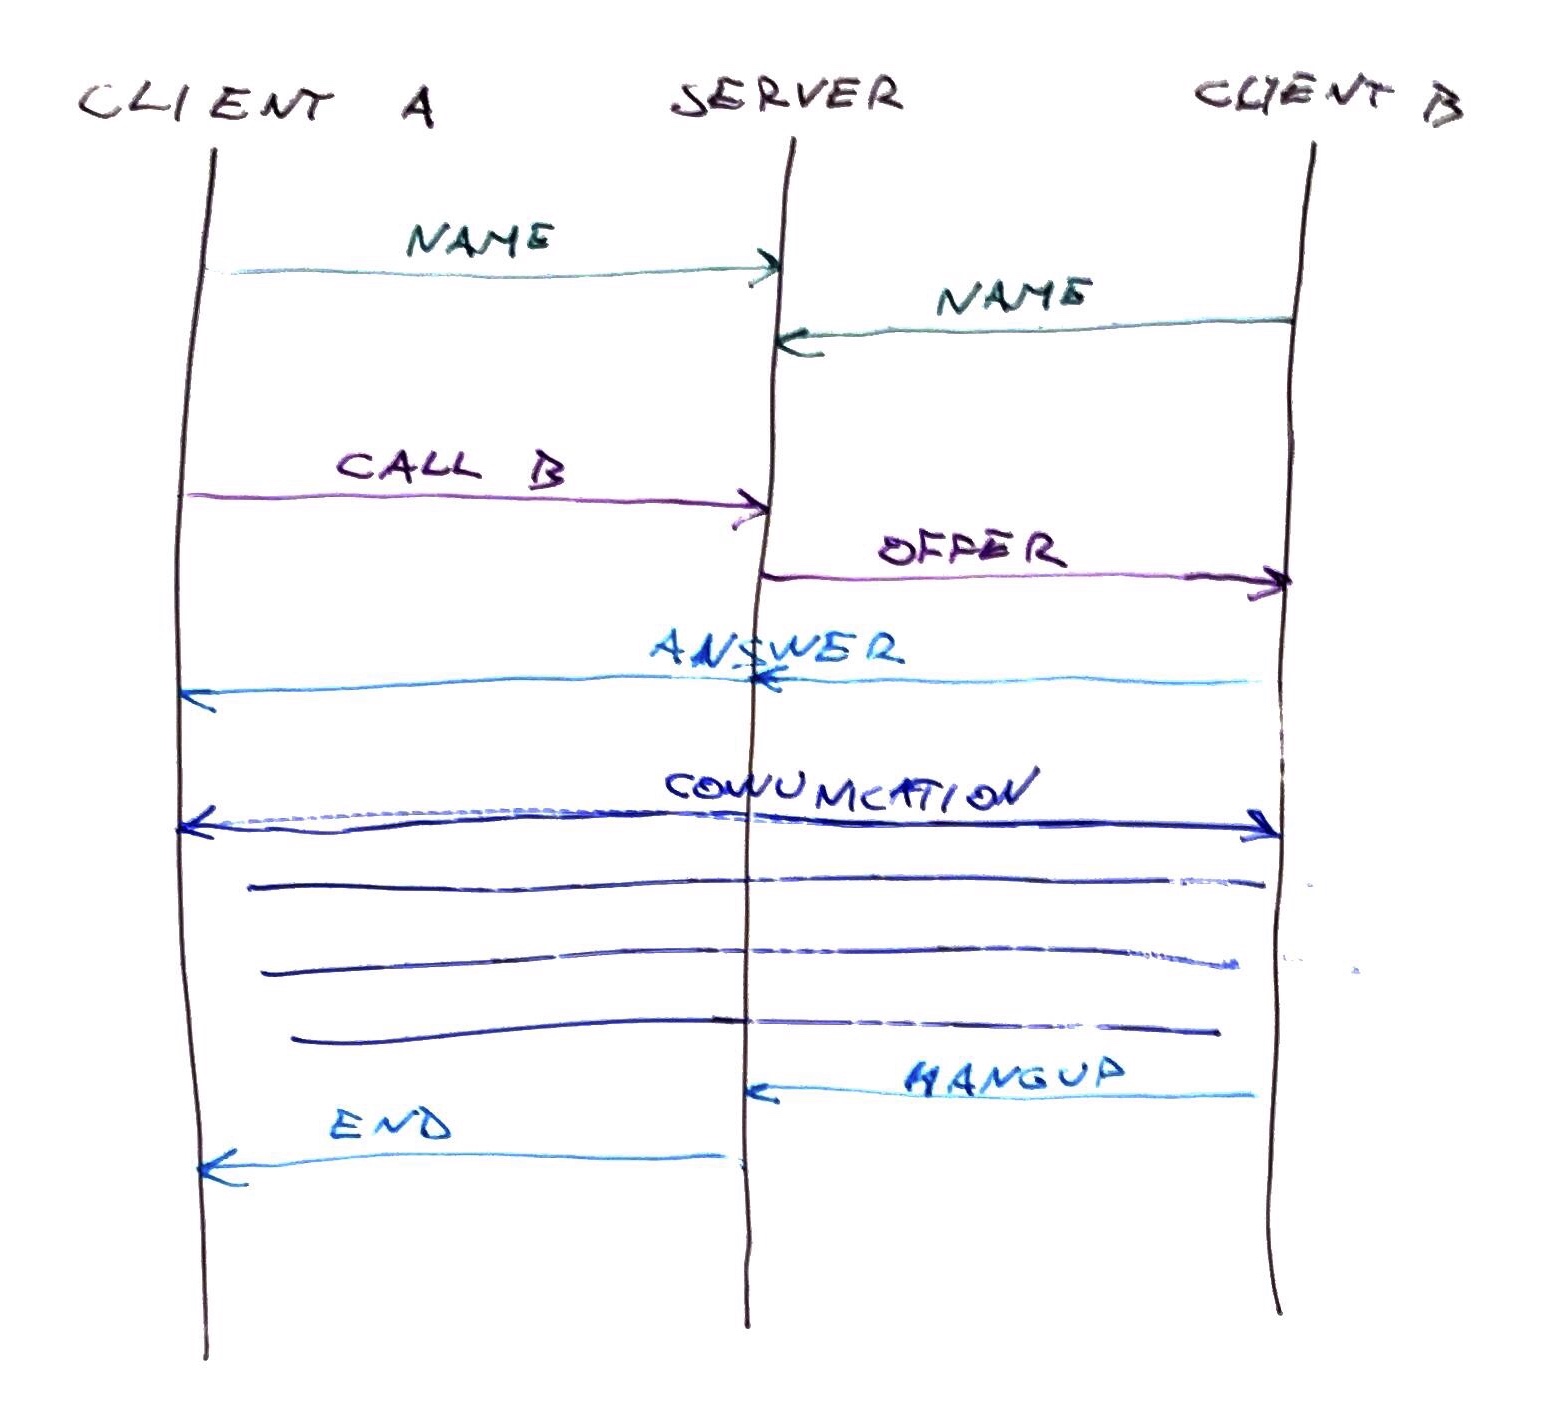 CLIENT A
SERVER
CLIENT B
NAME
NAME
CALL B
OFFER
ANSWER
COMUNICATION
HANGUP
END